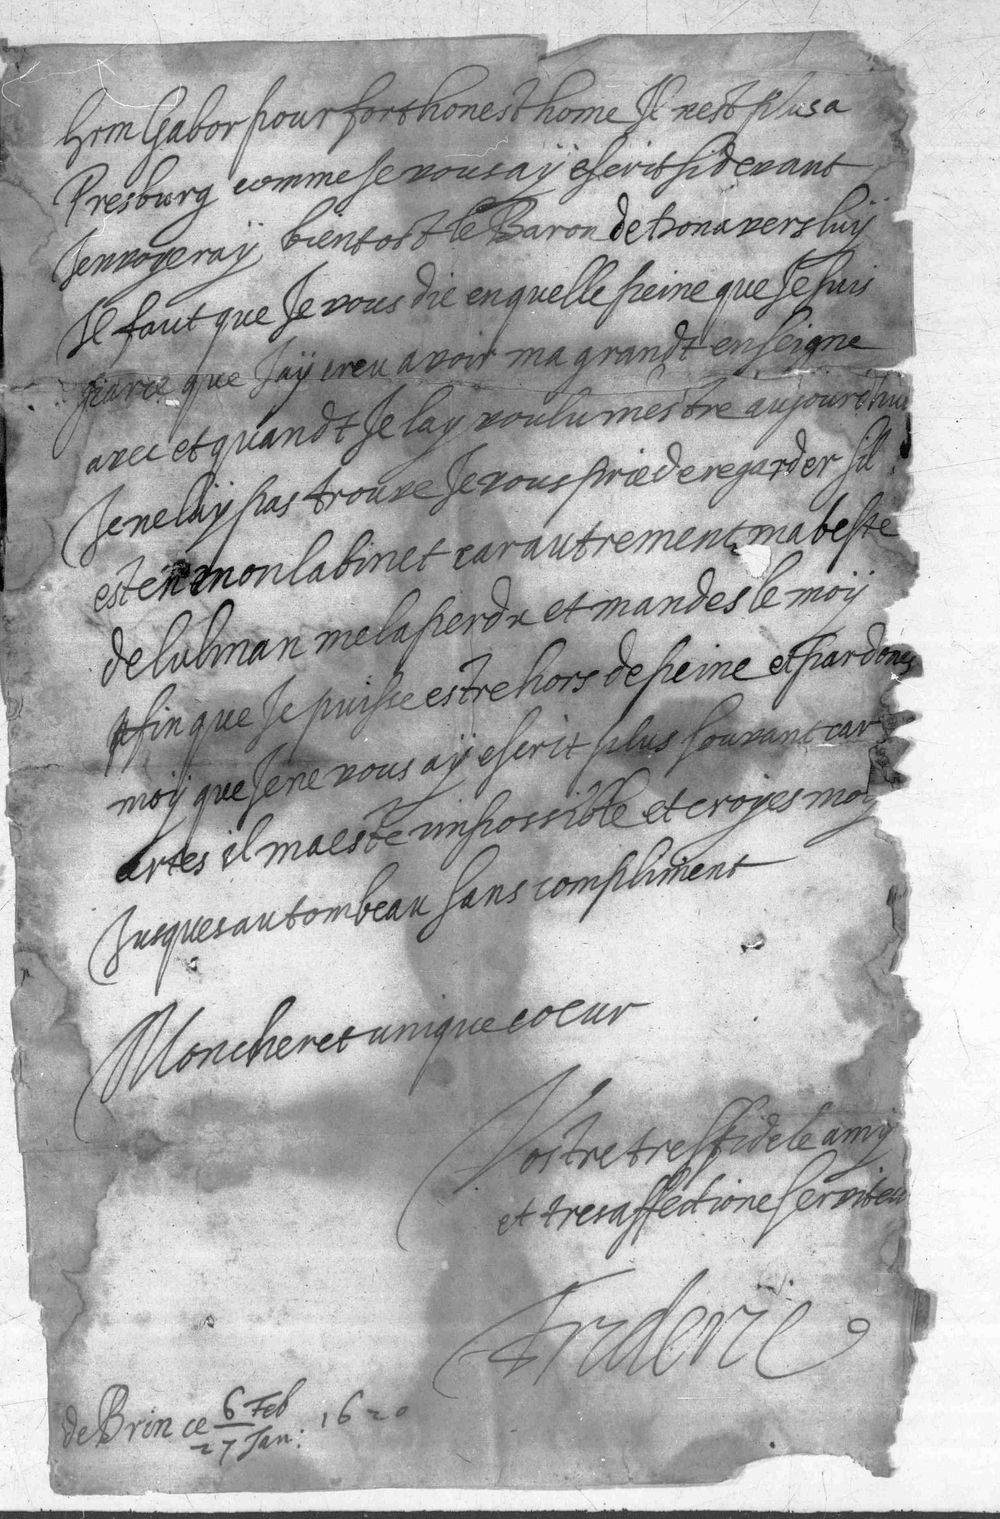 Gabor pour fort honest home Il nest plus a
Presburg comme Je vous aÿ escrit si devant
Jenvoyeraÿ bientost le Baron de tona vers luÿ
Il faut que Je vous die en quelle peine que Je suis
parce que Jaÿ creu avoir ma grandt enseigne
avec et quandt Je lay voulu mestre aujourdhuy
Je ne laÿ pas trouve Je vous prie de regarder sil
est en mon Cabinet car autrement ma beste
de Culman me la perdu et mandes le moÿ
afin que Je puisse estre hors de peine et pardones
moÿ que Je ne vous aÿ escrit plus souvant car
artes il ma este impossible et croyes moy
Jusques au tombeau sans compliment
Mon cher et unique coeur
Vostre tres fidele amÿ
et tres affectione serviteu
Frideric
de Brin ce 6 Feb / 27 Jan: 1620